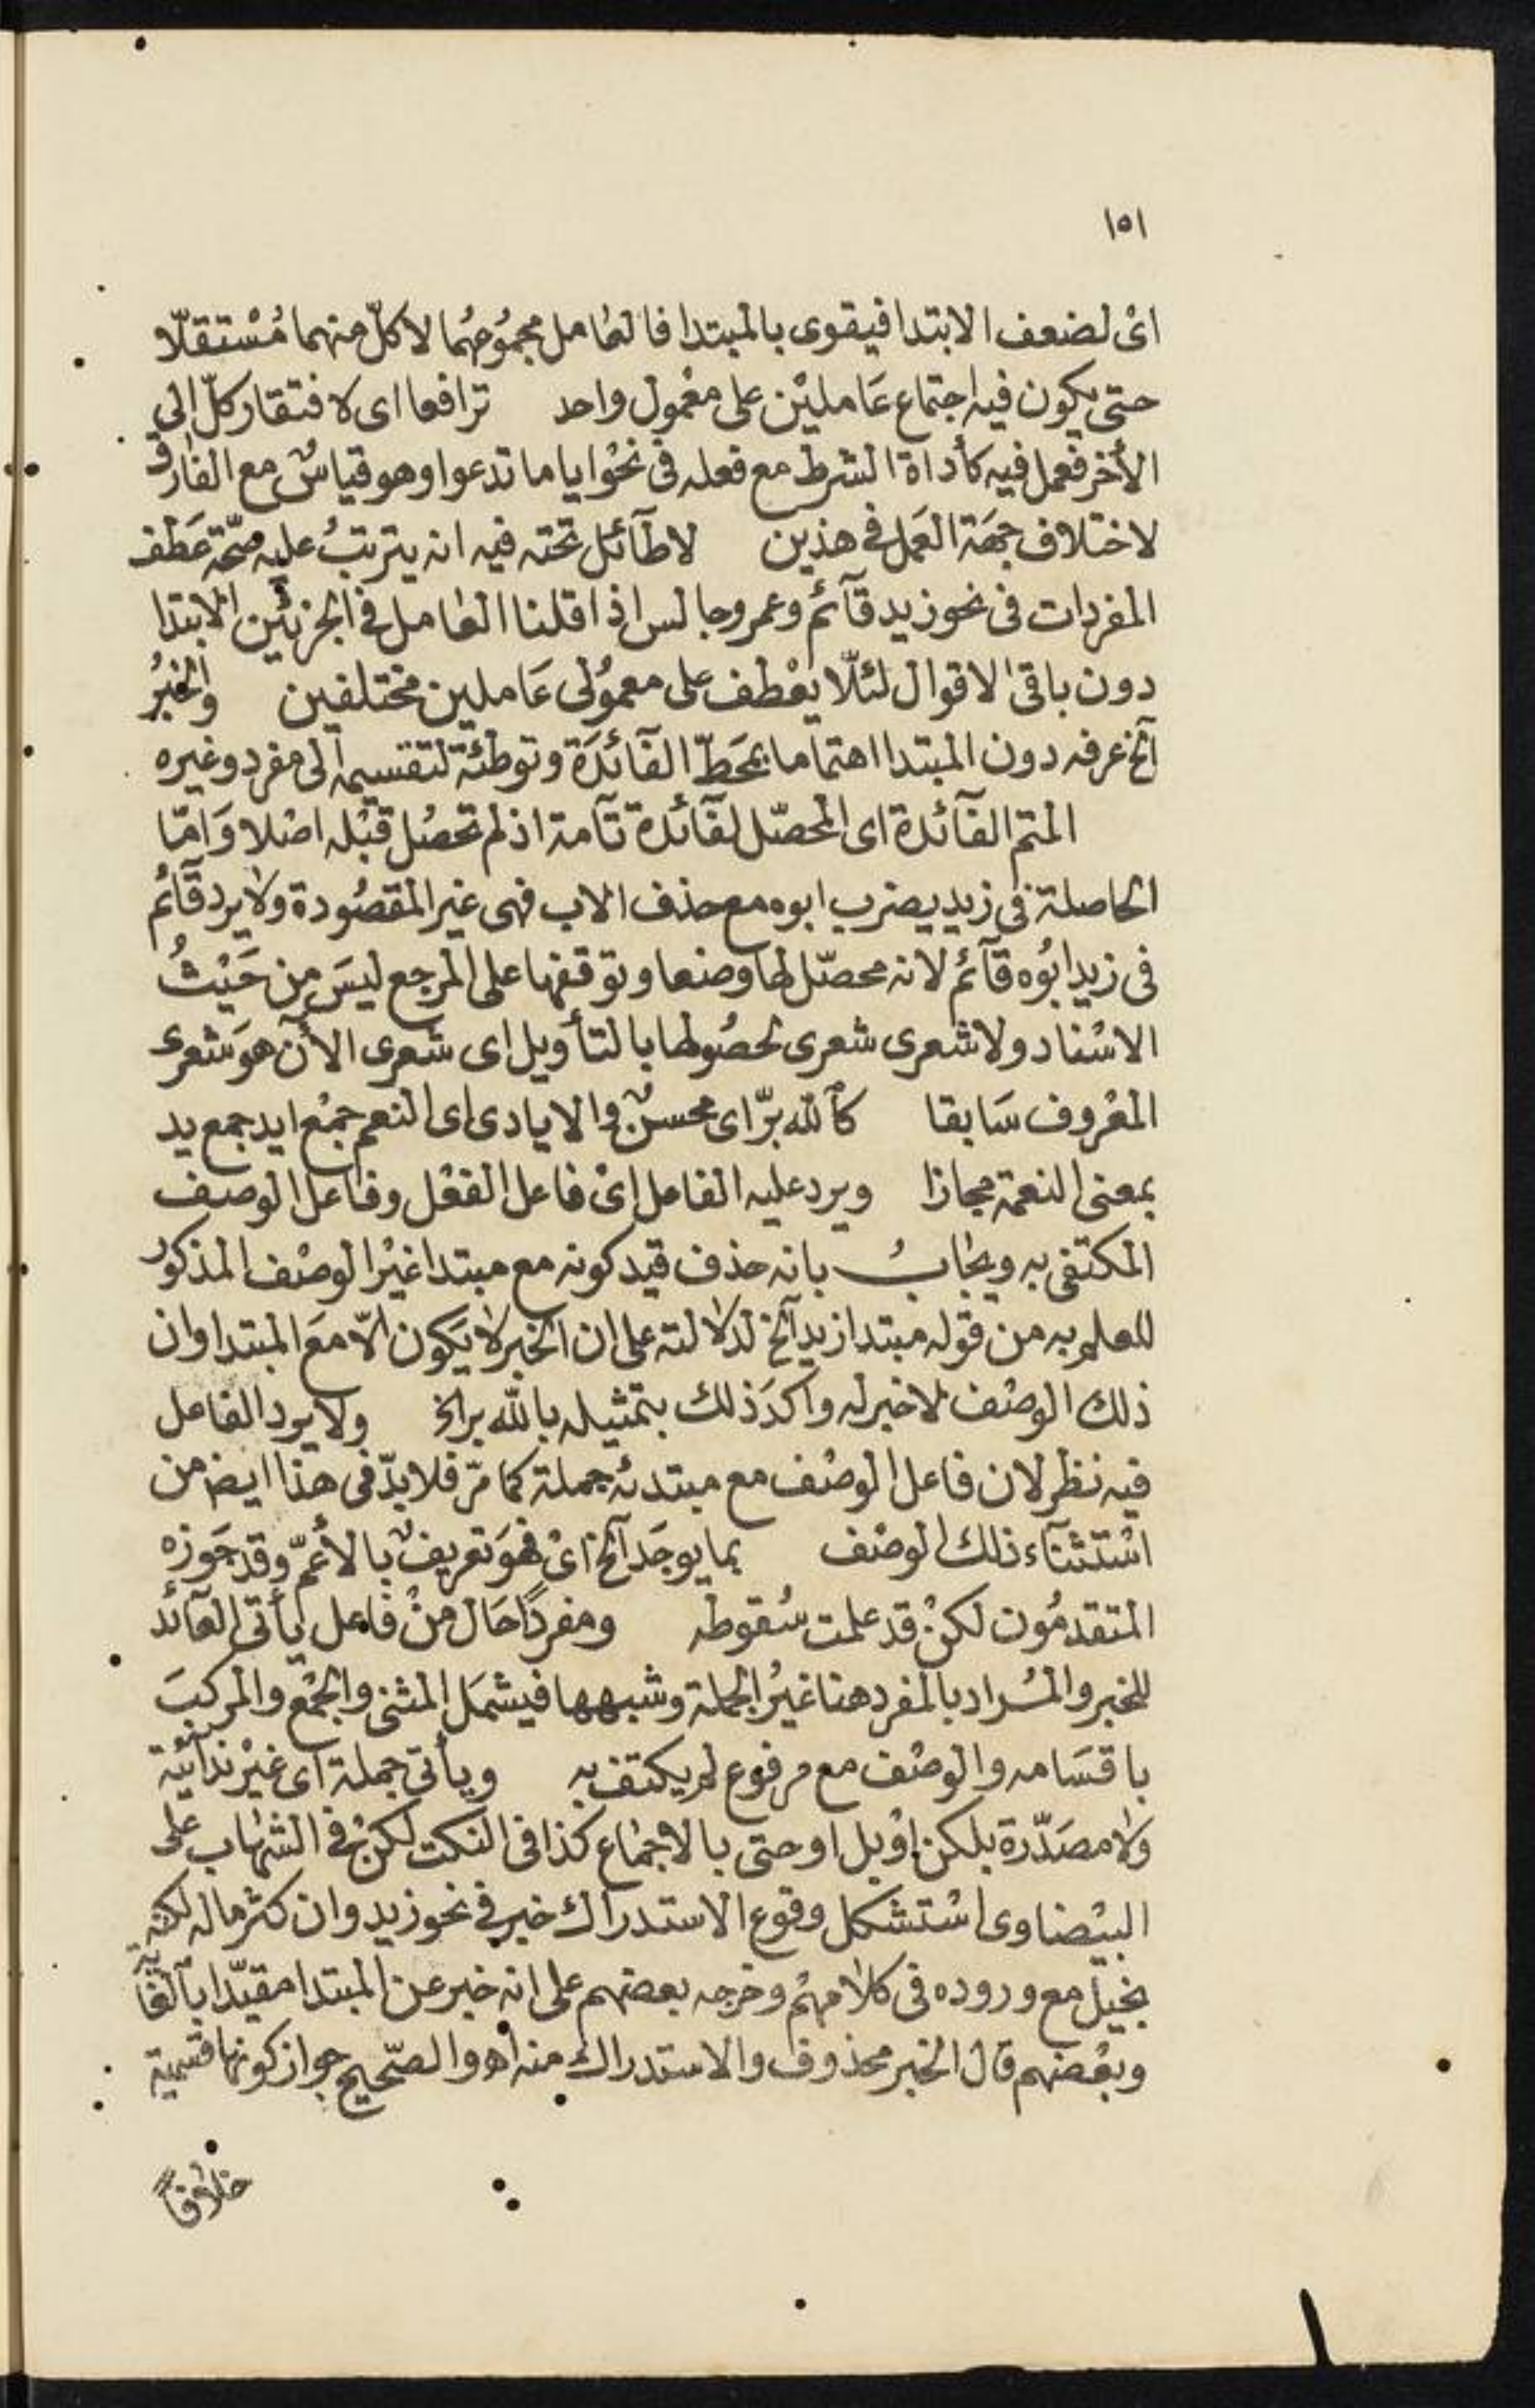 ١٥١
اى لضعف الابتدا فيقوى بالمبتدا فالعامل مجموعُهُما لا كلّ منهما مُسْتقلّا
حتى يكون فيه اجتماع عَامليْن على معْمول واحد ترافعا اى لافتقار كلّ الى
الأخر فعمل فيه كأداة الشرط مع فعله فى نحْو اياما تدعوا وهو قياسٌ مع الفارق
لاختلاف جهَة العَمل فى هذين لا طآئل تحته فيه انه يترتبُ عليه صحّة عَطف
المفردات فى نحو زيد قآئم وعمرو جالس اذا قلنا العامل فى الجزئين الابتدا
دون باقى الاقوال لئلّا يعْطف على معموُلى عَاملين مختلفين والخبرُ
آلخ عرفه دون المبتدا اهتماما بمحَطّ الفآئدَة وتوطئة لتقسيمه الى مفرد وغيره
المتم الفآئدة اى المحصّل لفآئدة تآمة اذ لم تحصُل قبْله اصْلا وَامّا
الحاصلة فى زيد يضرب ابوه مع حذف الاب فهى غير المقصُودة ولا يرد قآئم
فى زيد ابُوه قآئم لانه محصّل لها وضعا وتوقفها على المرجع ليسَ مِن حَيْثُ
الاسْناد ولا شعرى شعرى لحصُولها بالتأويل اى شعرى الأن هوَ شعرى
المعْروف سَابقا كالله برّ اى محسنٌ والايادى اى النعم جمْع ايد جمع يد
بمعنى النعمة مجازا ويرد عليه الفاعل اىْ فاعل الفعْل وفاعل الوصف
المكتفى به ويجابُ بانه حذف قيد كونه مع مبتدا غيْر الوصْف المذكور
للعلم به من قوله مبتدا زيد آلخ لدلالته على ان الخبر لا يَكون الّا معَ المبتدا وان
ذلك الوصْف لا خبر له واكدَ ذلك بتمثيله بالله بر الخ ولا يرد الفاعل
فيه نظر لان فاعل الوصْف مع مبتدئه جملة كما مرّ فلا بدّ فى هذا ايضا من
اسْتثنآء ذلك الوصْف بما يوجَد آلخ اىْ فهوَ تعريفٌ بالأعمّ وقد جَوزه
المتقدمُون لكنْ قد علمت سُقوطه ومفردًا حَال منْ فاعل يأتى العآئد
للخبر والمُراد بالمفرد هنا غيرُ الجملة وشبهها فيشمَل المثنى والجمْع والمركبَ
باقسَامه والوصْف مع مرفوع لم يكتف به ويأتى جملة اى غيْر ندائية
ولا مصَدّرة بلكن اوْ بل او حتى بالاجماع كذا فى النكت لكنْ فى الشهاب على
البيْضاوى اسْتشكل وقوع الاستدراك خبر فى نحو زيد وان كثر ماله لكنه
بخيل مع وروده فى كلامهمْ وخرجه بعضهم على انه خبر عن المبتدا مقيّدا بالغاية
وبعْضهم قال الخبر محذوف والاستدراك منه اهـ والصّحيح جواز كونها قسمية
خلافاً